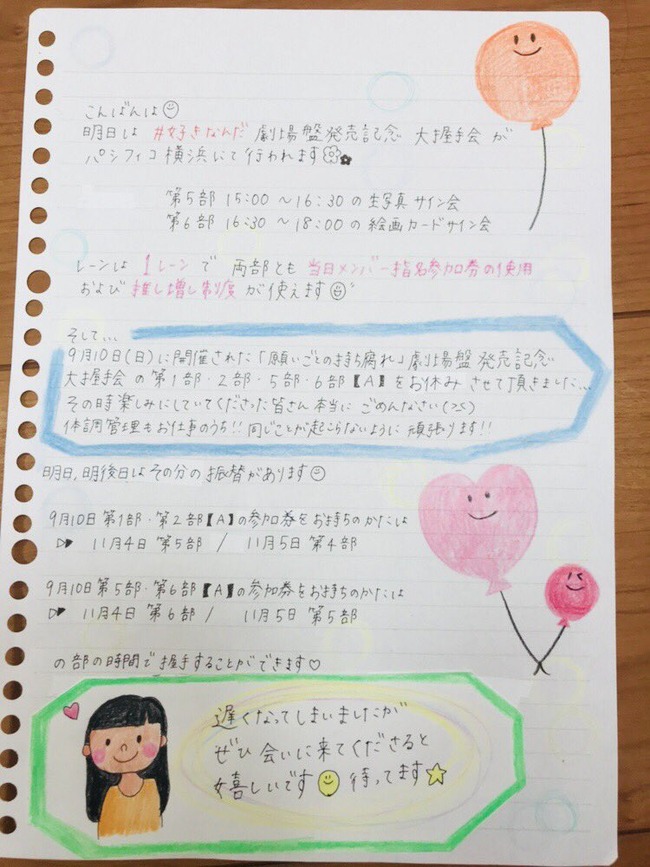 こんばんは☺
明日は #好きなんだ 劇場盤発売記念 大握手会 が
パシフィコ横浜にて行われます
第5部 15:00 ～16:30 の 生写真サイン会
第6部 16:30 ～18:00 の 絵画カードサイン会
レーンは 1レーン で 両部とも 当日メンバー指名参加券の使用
および 推し増し制度 が使えます☺
そして...
9月10日(日)に開催された「願いごとの持ち腐れ」劇場盤発売記念
大握手会 の 第1部・2部・5部・6部【A】をお休み させて頂きました...
その時楽しみにしていてくださった皆さん本当に ごめんなさい(>_<)
体調管理もお仕事のうち!! 同じことが起こらないように 頑張ります!!
明日,明後日はその分の 振替があります☺
9月10日 第1部・第2部【A】の参加券をお持ちのかたは
▷▶ 11月4日 第5部 / 11月5日 第4部
9月10日 第5部・第6部【A】の参加券をお持ちのかたは
▷▶ 11月4日 第6部 / 11月5日 第5部
の部の時間で握手することができます♡
遅くなってしまいましたが
ぜひ 会いに来てくださると
嬉しいです☺ 待ってます☆